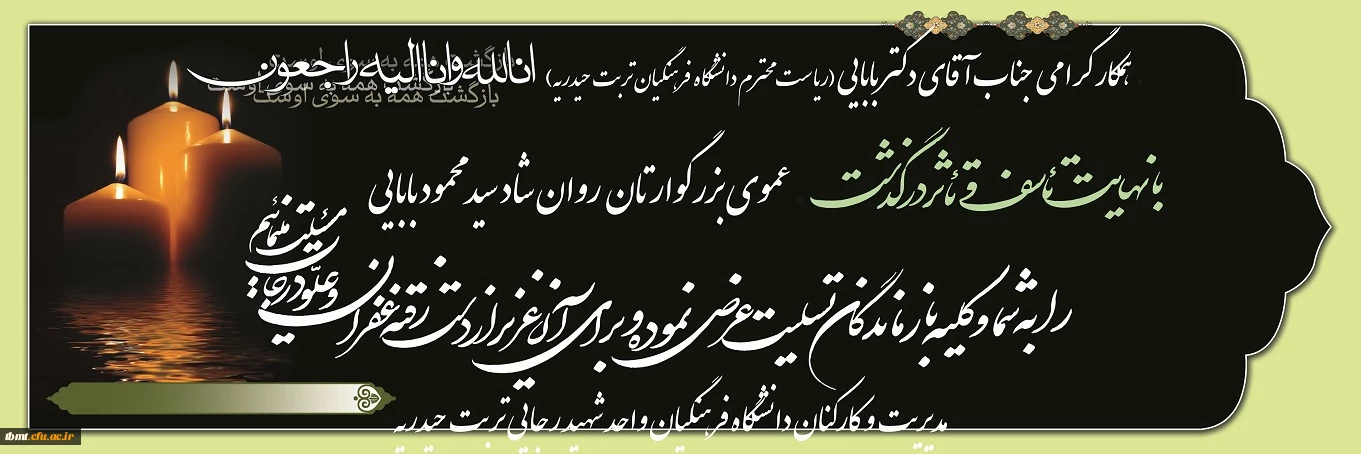 همکار گرامی جناب آقای دکتر بابایی (ریاست محترم دانشگاه فرهنگیان تربت حیدریه)
انالله وانا الیه راجعون
بازگشت همه به سوی اوست
بازگشت همه به سوی اوست
بازگشت همه به سوی اوست
با نهایت تأسف و تأثر درگذشت
عموی بزرگوارتان روان شاد سید محمود بابایی
را به شما و کلیه بازماندگان تسلیت عرض نموده و برای آن عزیز از دست رفته غفران
و علّو درجات
مسئلت مینمائیم
مدیریت و کارکنان دانشگاه فرهنگیان واحد شهید رجایی تربت حیدریه
tbmt.cfu.ac.ir